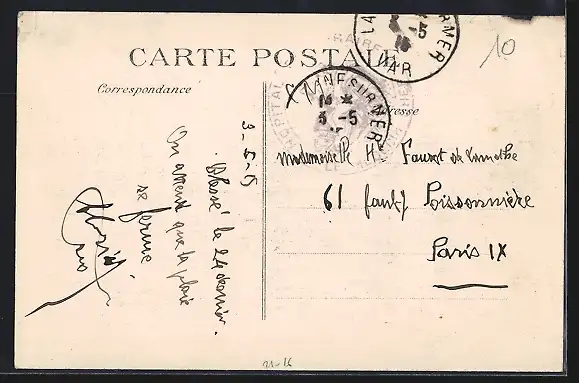 CARTE POSTALE
Correspondance
Adresse
LA
SUR MER
VAR
3-5
15
SUR MER
14 *
3 -5
HOPITAL
10
3-5-15
Blessé le 24 dernier.
On attend que la plaie
se ferme
Mademoiselle H.
61 faub. Poissonnière
Paris IX
21-16